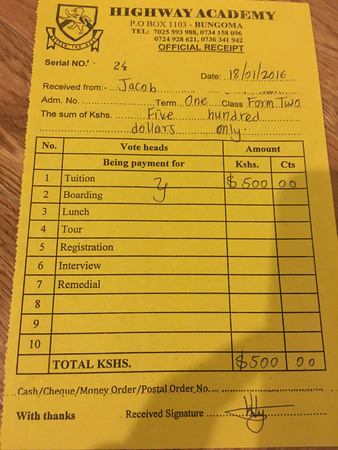 HIGHWAY ACADEMY
P.O BOX 1103 - BUNGOMA
TEL: 7025 593 988, 0734 158 096
0724 928 621, 0736 341 942
OFFICIAL RECEIPT
Serial NO.: 24
Date: 18/01/2016
Received from:- Jacob
Adm. No. Term One Class Form Two
The sum of Kshs. Five hundred
dollars only.
No. Vote heads Amount
Being payment for Kshs. Cts
1 Tuition $500 00
2 Boarding
3 Lunch
4 Tour
5 Registration
6 Interview
7 Remedial
8
9
10
TOTAL KSHS. $500 00
Cash/Cheque/Money Order/Postal Order No.
With thanks Received Signature